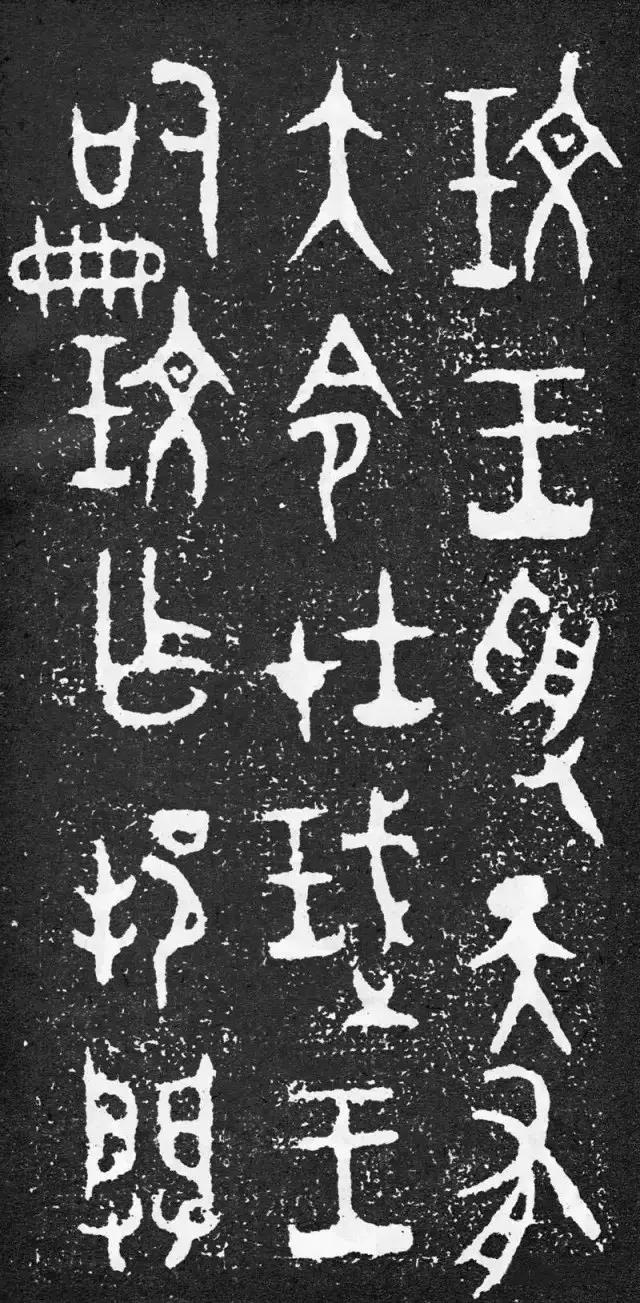 玟王受天有
大令在珷王
嗣玟乍邦闢